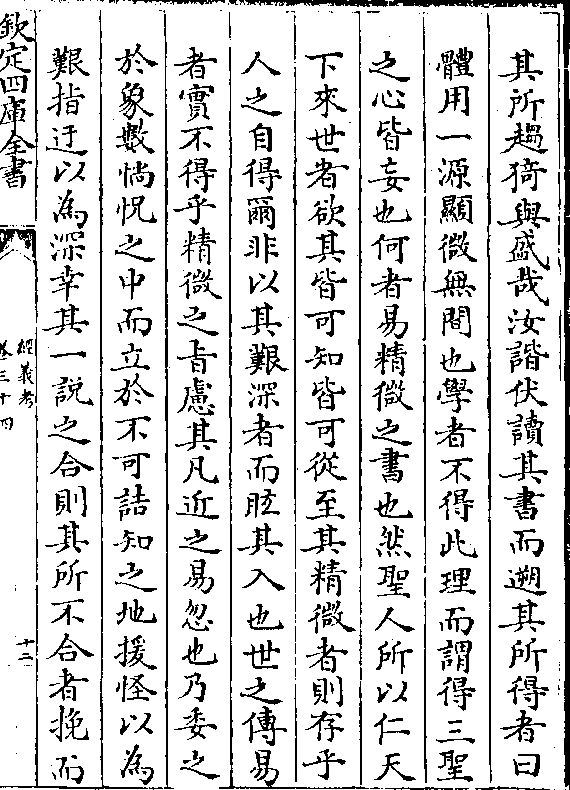 其所趨猗與盛哉汝諧伏讀其書而遡其所得者曰
體用一源顯微無間也學者不得此理而謂得三聖
之心皆妄也何者易精微之書也然聖人所以仁天
下來世者欲其皆可知皆可從至其精微者則存乎
人之自得爾非以其艱深者而眩其入也世之傳易
者實不得乎精微之旨慮其凡近之易忽也乃委之
於象數惝怳之中而立於不可詰知之地援怪以為
艱指迂以為深幸其一説之合則其所不合者挽而
欽定四庫全書
經義考
卷三十四
十二